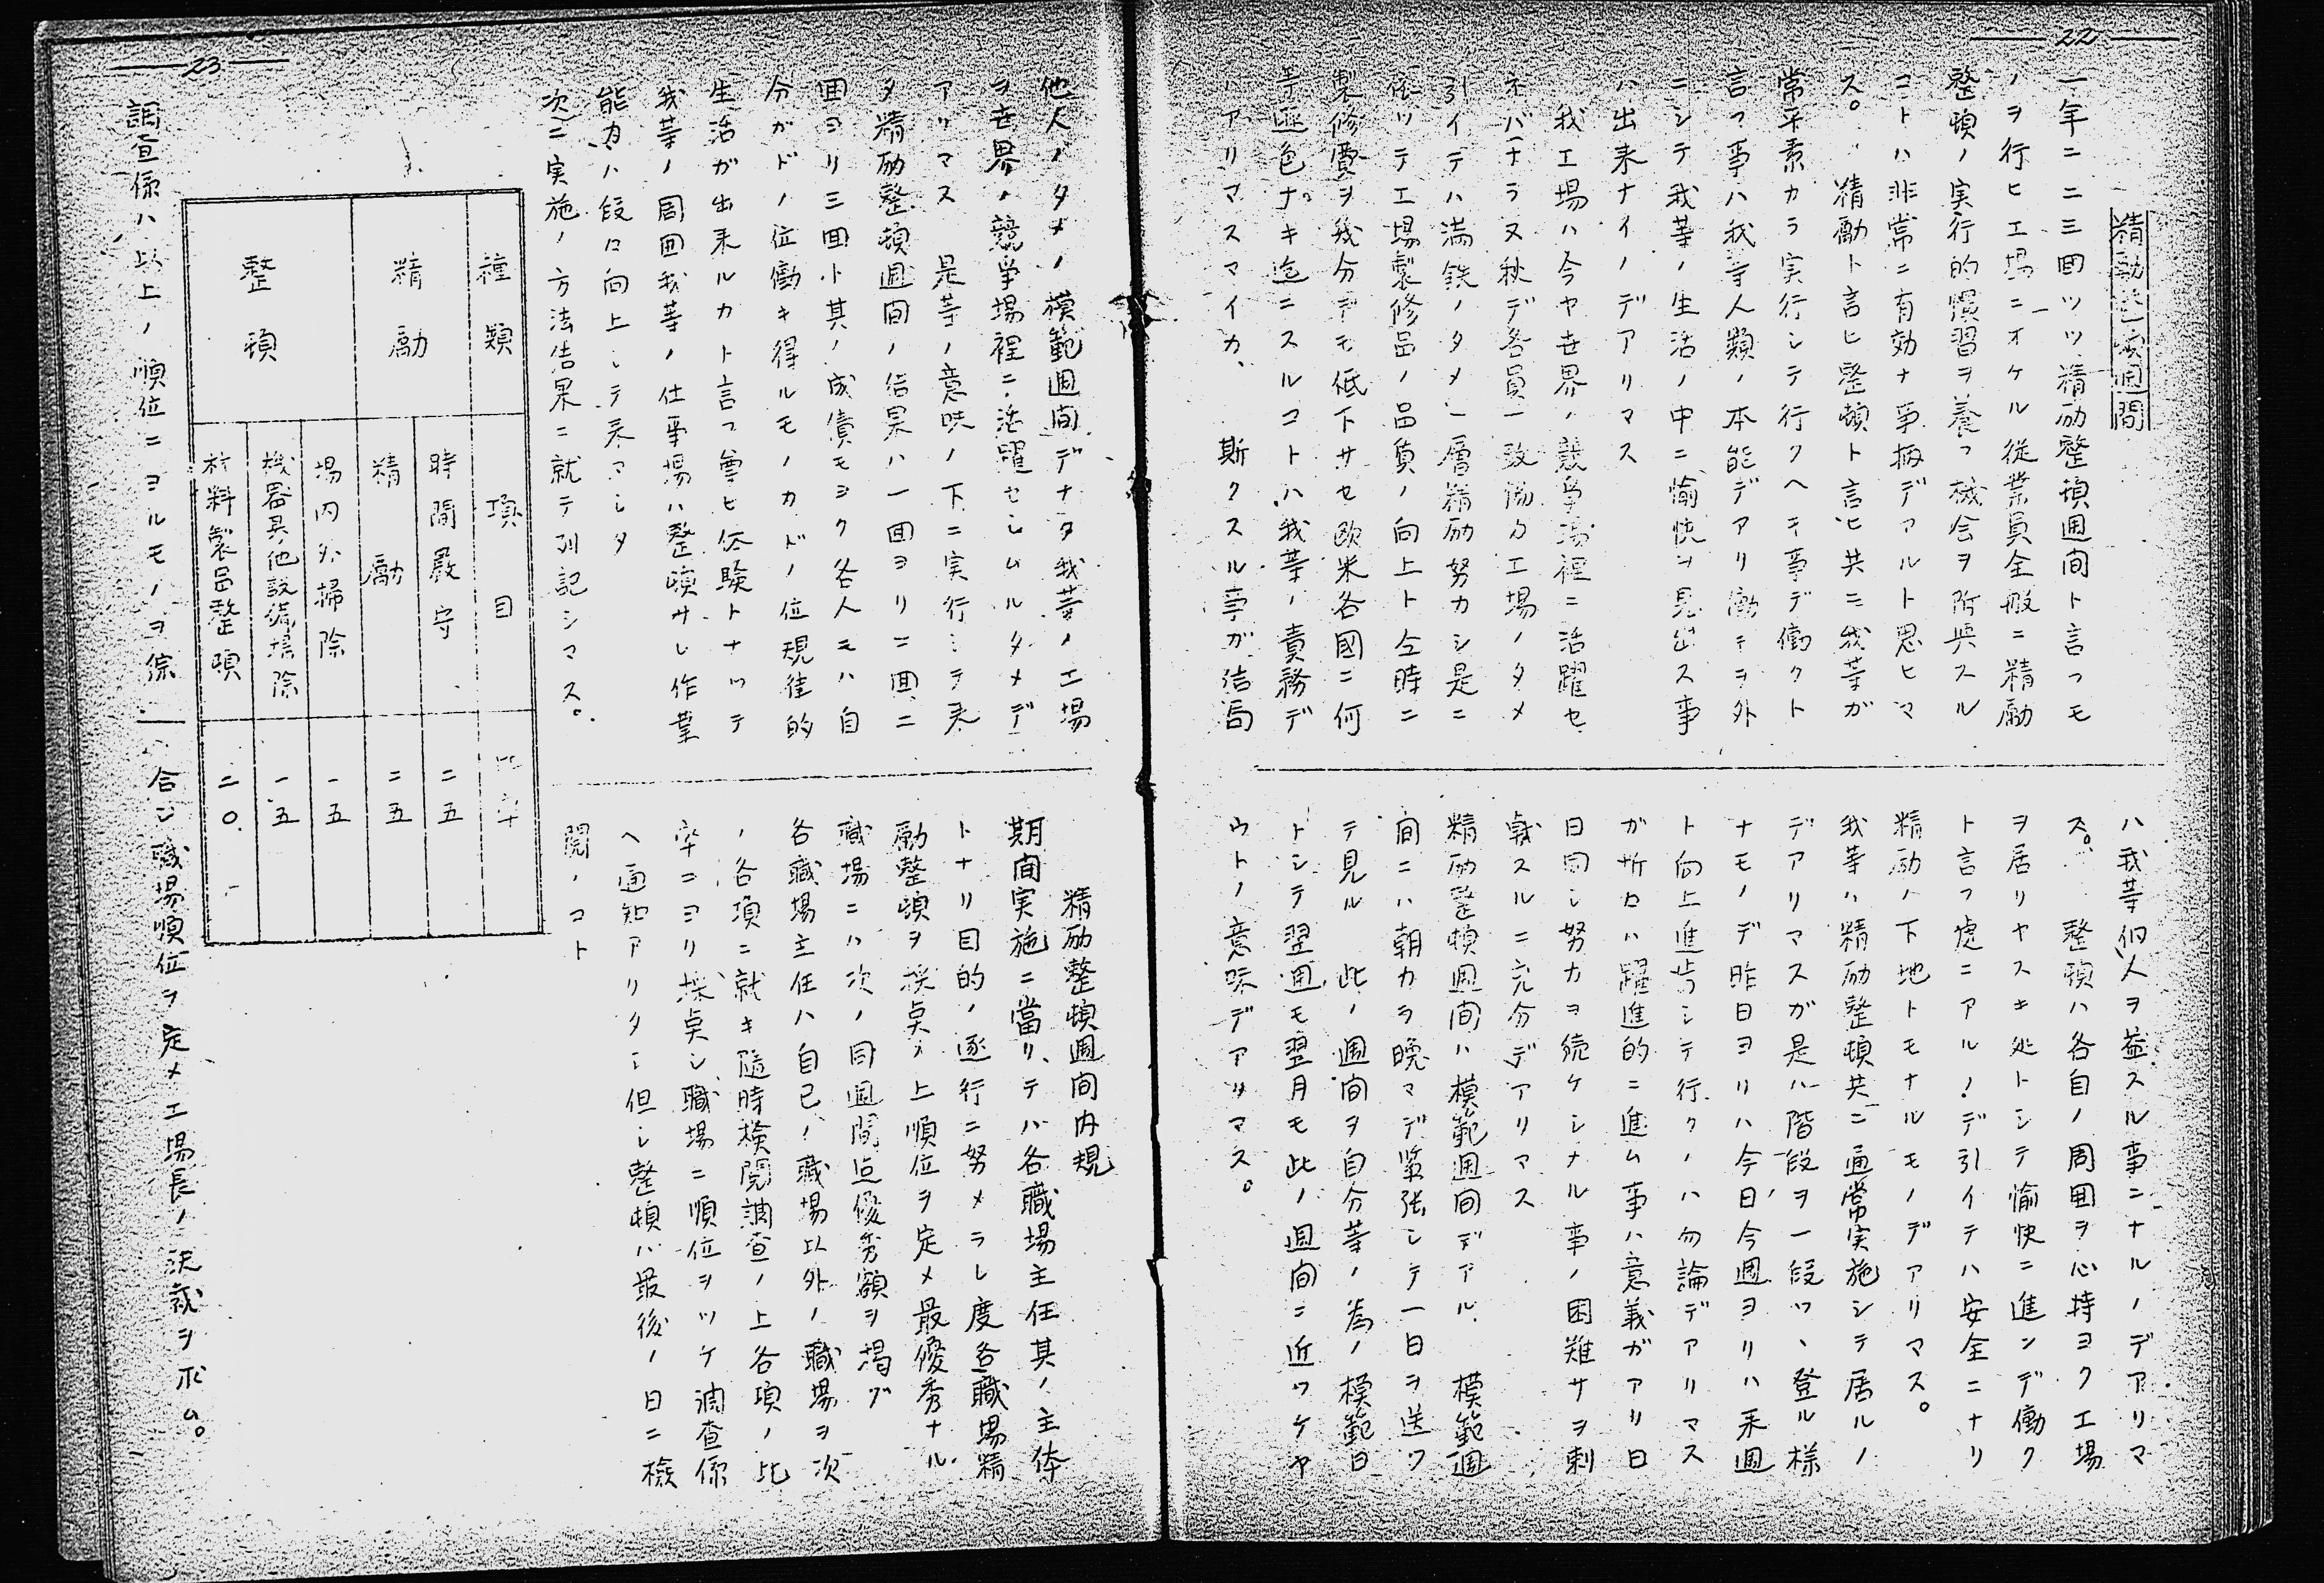 22
精励整頓週間
一年ニ二三回ツツ精励整頓週間ト言フモ
ノヲ行ヒ工場ニオケル従業員全般ニ精励
整頓ノ実行的慣習ヲ養フ機会ヲ附與スル
コトハ非常ニ有効ナ事柄デアルト思ヒマ
ス。精励ト言ヒ整頓ト言ヒ共ニ我等ガ
常平素カラ実行シテ行クヘキ事デ働クト
言フ事ハ我等人類ノ本能デアリ働キヲ外
ニシテ我等ノ生活ノ中ニ愉快ヲ見出ス事
ハ出来ナイノデアリマス
我工場ハ今ヤ世界ノ競争場裡ニ活躍セ
ネバナラヌ秋デ各員一致協力工場ノタメ
引イテハ満鉄ノタメ一層精励努力シ是ニ
依ツテ工場製修品ノ品質ノ向上ト仝時ニ
製修費ヲ幾分デモ低下サセ欧米各國ニ何
等遜色ナキ迄ニスルコトハ我等ノ責務デ
ハアリマスマイカ、斯クスル事ガ結局
ハ我等個人ヲ益スル事ニナルノデアリマ
ス。整頓ハ各自ノ周囲ヲ心持ヨク工場
ヲ居リヤスキ処トシテ愉快ニ進ンデ働ク
ト言フ処ニアルノデ引イテハ安全ニナリ
精励ノ下地トモナルモノデアリマス。
我等ハ精励整頓共ニ通常実施シテ居ルノ
デアリマスガ是ハ階段ヲ一段ツヽ登ル様
ナモノデ昨日ヨリハ今日今週ヨリハ来週
ト向上進歩シテ行クノハ勿論デアリマス
ガ所ロハ躍進的ニ進ム事ハ意義ガアリ日
日同シ努力ヲ続ケシナル事ノ困難サヲ刺
戟スルニ充分デアリマス
精励整頓週間ハ模範週間デアル、模範週
間ニハ朝カラ晩マデ緊張シテ一日ヲ送ツ
テ見ル 此ノ週間ヲ自分等ノ為ノ模範日
トシテ翌週モ翌月モ此ノ週間ニ近ツケヤ
ウトノ意味デアリマス。
23
他人ノタメノ模範週間デナク我等ノ工場
ヲ世界ノ競争場裡ニ活躍セシムルタメデ
アリマス 是等ノ意味ノ下ニ実行シテ来
タ精励整頓週間ノ結果ハ一回ヨリ二回、二
回ヨリ三回ト其ノ成績モヨク各人モハ自
分ガドノ位働キ得ルモノカドノ位規律的
生活ガ出来ルカト言フ尊ヒ体験トナツテ
我等ノ周囲我等ノ仕事場ハ整頓サレ作業
能力ハ段々向上シテ来マシタ
次ニ実施ノ方法結果ニ就テ列記シマス。
精励整頓週間内規
期間実施ニ當リテハ各職場主任其ノ主体
トナリ目的ノ遂行ニ努メラレ度各職場精
励整頓ヲ採点ノ上順位ヲ定メ最優秀ナル
職場ニハ次ノ同週間迄優秀額ヲ掲グ
各職場主任ハ自己ノ職場以外ノ職場ヲ次
ノ各項ニ就キ随時検閲調査ノ上各項ノ比
率ニヨリ採点シ職場ニ順位ヲツケ調査係
ヘ通知アリタシ但シ整頓ハ最後ノ日ニ檢
閲ノコト
種類 項目 比率
精勵 時間嚴守 二五
精勵 二五
整頓 場内外掃除 一五
機器具他設備掃除 一五
材料製品整頓 二〇
調査係ハ以上ノ順位ニヨルモノヲ綜
合シ職場順位ヲ定メ工場長ノ決裁ヲ求ム。